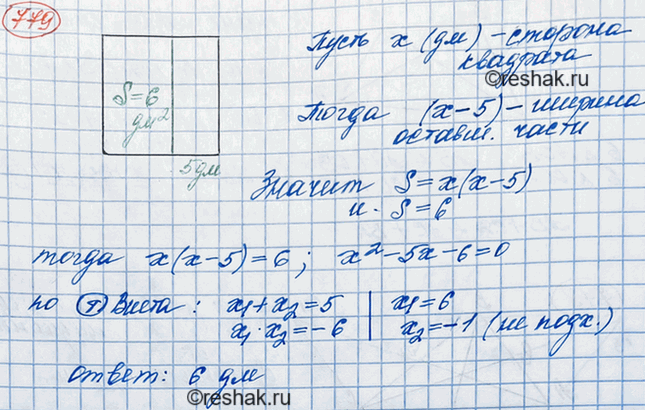 779
Пусть x (дм) – сторона
квадрата
©reshak.ru
S=6
дм²
5 дм
Тогда (x-5) – ширина
оставш. части
Значит S=x(x-5)
и S=6
тогда x(x-5)=6; x²-5x-6=0
по т Виета: x₁+x₂=5 | x₁=6
x₁·x₂=-6 | x₂=-1 (не подх.)
ответ: 6 дм
©reshak.ru